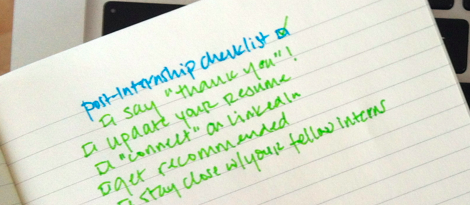 post-Internship checklist
say "thank you"!
update your resume
"connect" on LinkedIn
get recommended
stay close w/your fellow interns